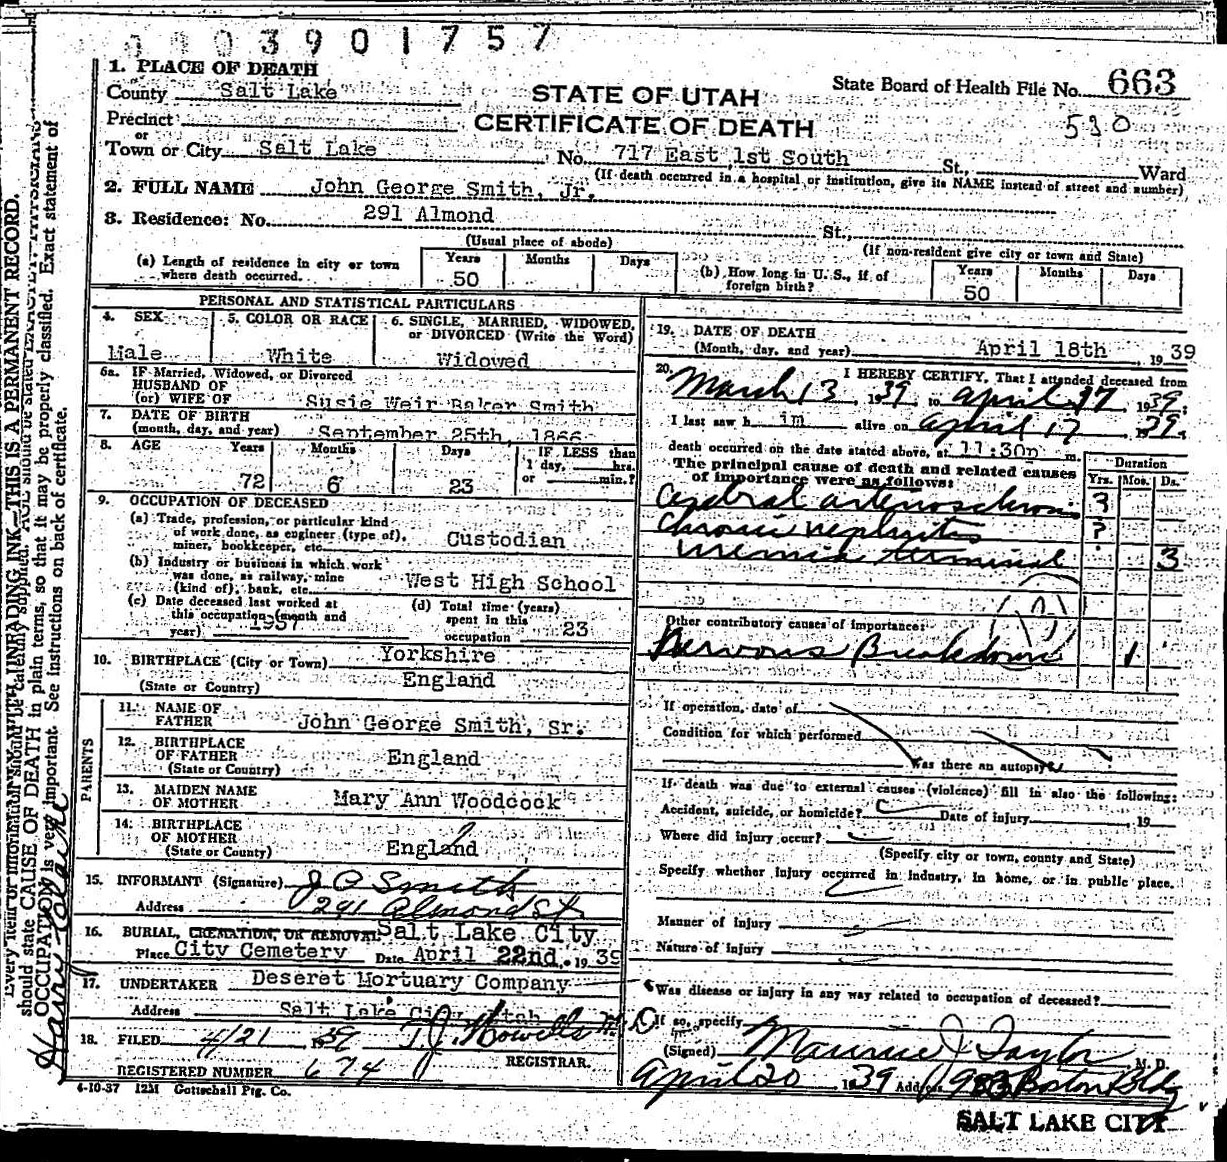 0 3 9 0 1 7 5 7
1. PLACE OF DEATH
County Salt Lake
STATE OF UTAH
State Board of Health File No. 663
Precinct
CERTIFICATE OF DEATH
530
or
Town or City Salt Lake No. 717 East 1st South St., Ward
(If death occurred in a hospital or institution, give its NAME instead of street and number)
2. FULL NAME John George Smith, Jr.
3. Residence: No. 291 Almond St.,
(Usual place of abode) (If non-resident give city or town and State)
(a) Length of residence in city or town where death occurred. Years 50 Months Days
(b) How long in U. S., if of foreign birth? Years 50 Months Days
PERSONAL AND STATISTICAL PARTICULARS
4. SEX Male
5. COLOR OR RACE White
6. SINGLE, MARRIED, WIDOWED, or DIVORCED (Write the Word) Widowed
6a. IF Married, Widowed, or Divorced
HUSBAND OF
(or) WIFE OF Susie Weir Baker Smith
7. DATE OF BIRTH
(month, day, and year) September 25th, 1866
8. AGE Years 72 Months 6 Days 23
IF LESS than 1 day, hrs. or min.?
9. OCCUPATION OF DECEASED
(a) Trade, profession, or particular kind
of work done, as engineer (type of),
miner, bookkeeper, etc. Custodian
(b) Industry or business in which work
was done, as railway, mine
(kind of), bank, etc. West High School
(c) Date deceased last worked at
this occupation (month and
year) 1937
(d) Total time (years)
spent in this
occupation 23
10. BIRTHPLACE (City or Town) Yorkshire
(State or Country) England
PARENTS
11. NAME OF
FATHER John George Smith, Sr.
12. BIRTHPLACE
OF FATHER England
(State or Country)
13. MAIDEN NAME
OF MOTHER Mary Ann Woodcock
14. BIRTHPLACE
OF MOTHER England
(State or County)
15. INFORMANT (Signature) J G Smith
Address 291 Almond St
16. BURIAL, CREMATION, OR REMOVAL Salt Lake City
Place City Cemetery Date April 22nd, 1939
17. UNDERTAKER Deseret Mortuary Company
Address Salt Lake City, Utah
18. FILED 4/21 1939 T. J. Howells
REGISTRAR.
REGISTERED NUMBER 674
4-10-37 12M Gottschall Ptg. Co.
19. DATE OF DEATH
(Month, day, and year) April 18th, 1939
20. I HEREBY CERTIFY, That I attended deceased from
March 13, 1939, to April 17, 1939;
I last saw h im alive on April 17 1939,
death occurred on the date stated above, at 11:30p m.
The principal cause of death and related causes
of importance were as follows:
Duration
Yrs. Mos. Ds.
Cerebral arteriosclerosis ?
Chronic nephritis ?
uremia terminal 3
Other contributory causes of importance:
Nervous Breakdown 1
If operation, date of
Condition for which performed
Was there an autopsy?
If death was due to external causes (violence) fill in also the following:
Accident, suicide, or homicide? Date of injury 19
Where did injury occur?
(Specify city or town, county and State)
Specify whether injury occurred in industry, in home, or in public place.
Manner of injury
Nature of injury
Was disease or injury in any way related to occupation of deceased?
If so, specify
(Signed) Maurice J Taylor M. D.
April 20 1939 Address Boston Bldg
SALT LAKE CITY
should state CAUSE OF DEATH in plain terms, so that it may be properly classified. Exact statement of
OCCUPATION is very important. See instructions on back of certificate.